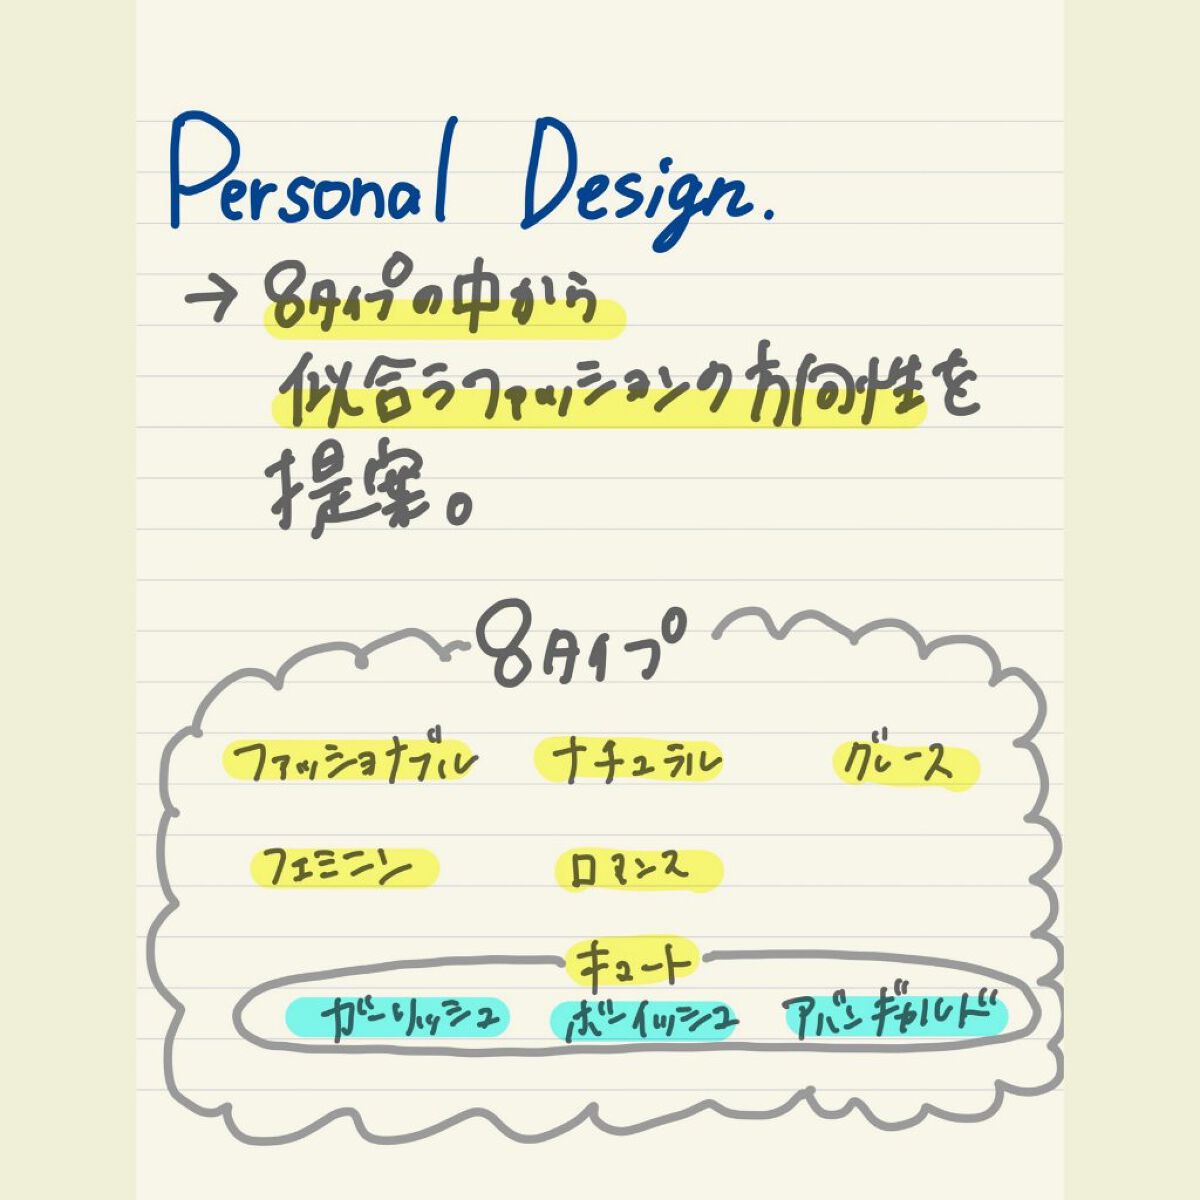 Personal Design.
→ 8タイプの中から
似合うファッションの方向性を
提案。
8タイプ
ファッショナブル ナチュラル グレース
フェミニン ロマンス
キュート
ガーリッシュ ボーイッシュ アバンギャルド